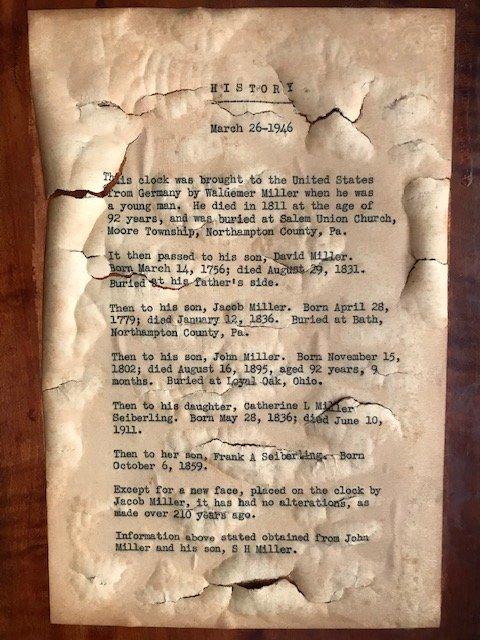 HISTORY
March 26-1946
This clock was brought to the United States
from Germany by Waldemer Miller when he was
a young man. He died in 1811 at the age of
92 years, and was buried at Salem Union Church,
Moore Township, Northampton County, Pa.
It then passed to his son, David Miller.
Born March 14, 1756; died August 29, 1831.
Buried at his father's side.
Then to his son, Jacob Miller. Born April 28,
1779; died January 12, 1836. Buried at Bath,
Northampton County, Pa.
Then to his son, John Miller. Born November 15,
1802; died August 16, 1895, aged 92 years, 9
months. Buried at Loyal Oak, Ohio.
Then to his daughter, Catherine L Miller
Seiberling. Born May 28, 1836; died June 10,
1911.
Then to her son, Frank A Seiberling. Born
October 6, 1859.
Except for a new face, placed on the clock by
Jacob Miller, it has had no alterations, as
made over 210 years ago.
Information above stated obtained from John
Miller and his son, S H Miller.